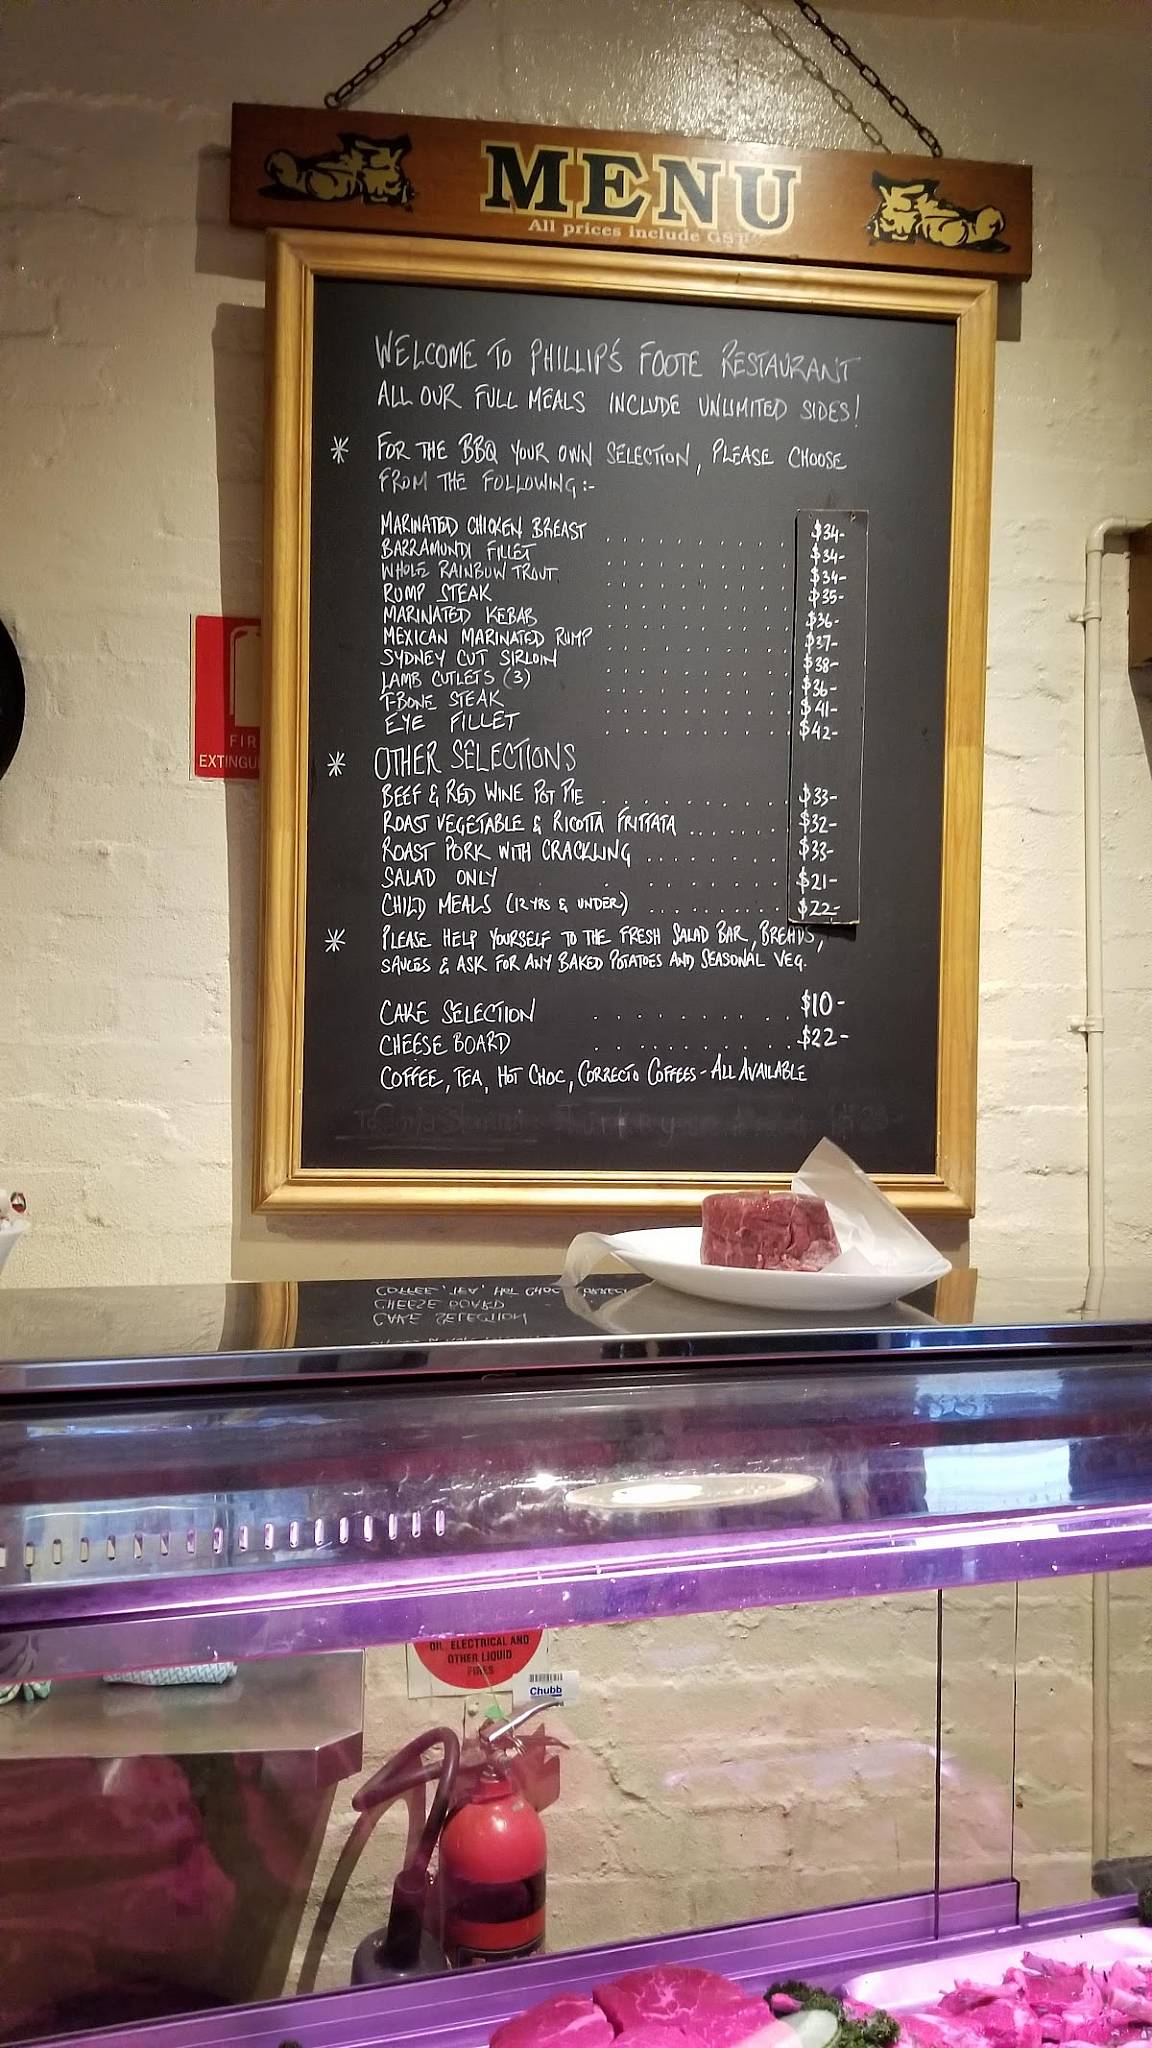 MENU
All prices include GST
WELCOME TO PHILLIP'S FOOTE RESTAURANT
ALL OUR FULL MEALS INCLUDE UNLIMITED SIDES!
* FOR THE BBQ YOUR OWN SELECTION, PLEASE CHOOSE
FROM THE FOLLOWING:-
MARINATED CHICKEN BREAST ........ $34-
BARRAMUNDI FILLET ........ $34-
WHOLE RAINBOW TROUT ........ $34-
RUMP STEAK ........ $35-
MARINATED KEBAB ........ $36-
MEXICAN MARINATED RUMP ........ $37-
SYDNEY CUT SIRLOIN ........ $38-
LAMB CUTLETS (3) ........ $36-
T-BONE STEAK ........ $41-
EYE FILLET ........ $42-
* OTHER SELECTIONS
BEEF & RED WINE POT PIE ........ $33-
ROAST VEGETABLE & RICOTTA FRITTATA ...... $32-
ROAST PORK WITH CRACKLING ........ $33-
SALAD ONLY ........ $21-
CHILD MEALS (12 YRS & UNDER) ........ $22-
* PLEASE HELP YOURSELF TO THE FRESH SALAD BAR, BREADS,
SAUCES & ASK FOR ANY BAKED POTATOES AND SEASONAL VEG.
CAKE SELECTION .......... $10-
CHEESE BOARD .......... $22-
COFFEE, TEA, HOT CHOC, CORRECTO COFFEES - ALL AVAILABLE
FIR
EXTINGU
OIL ELECTRICAL AND
OTHER LIQUID
FIRES
Chubb